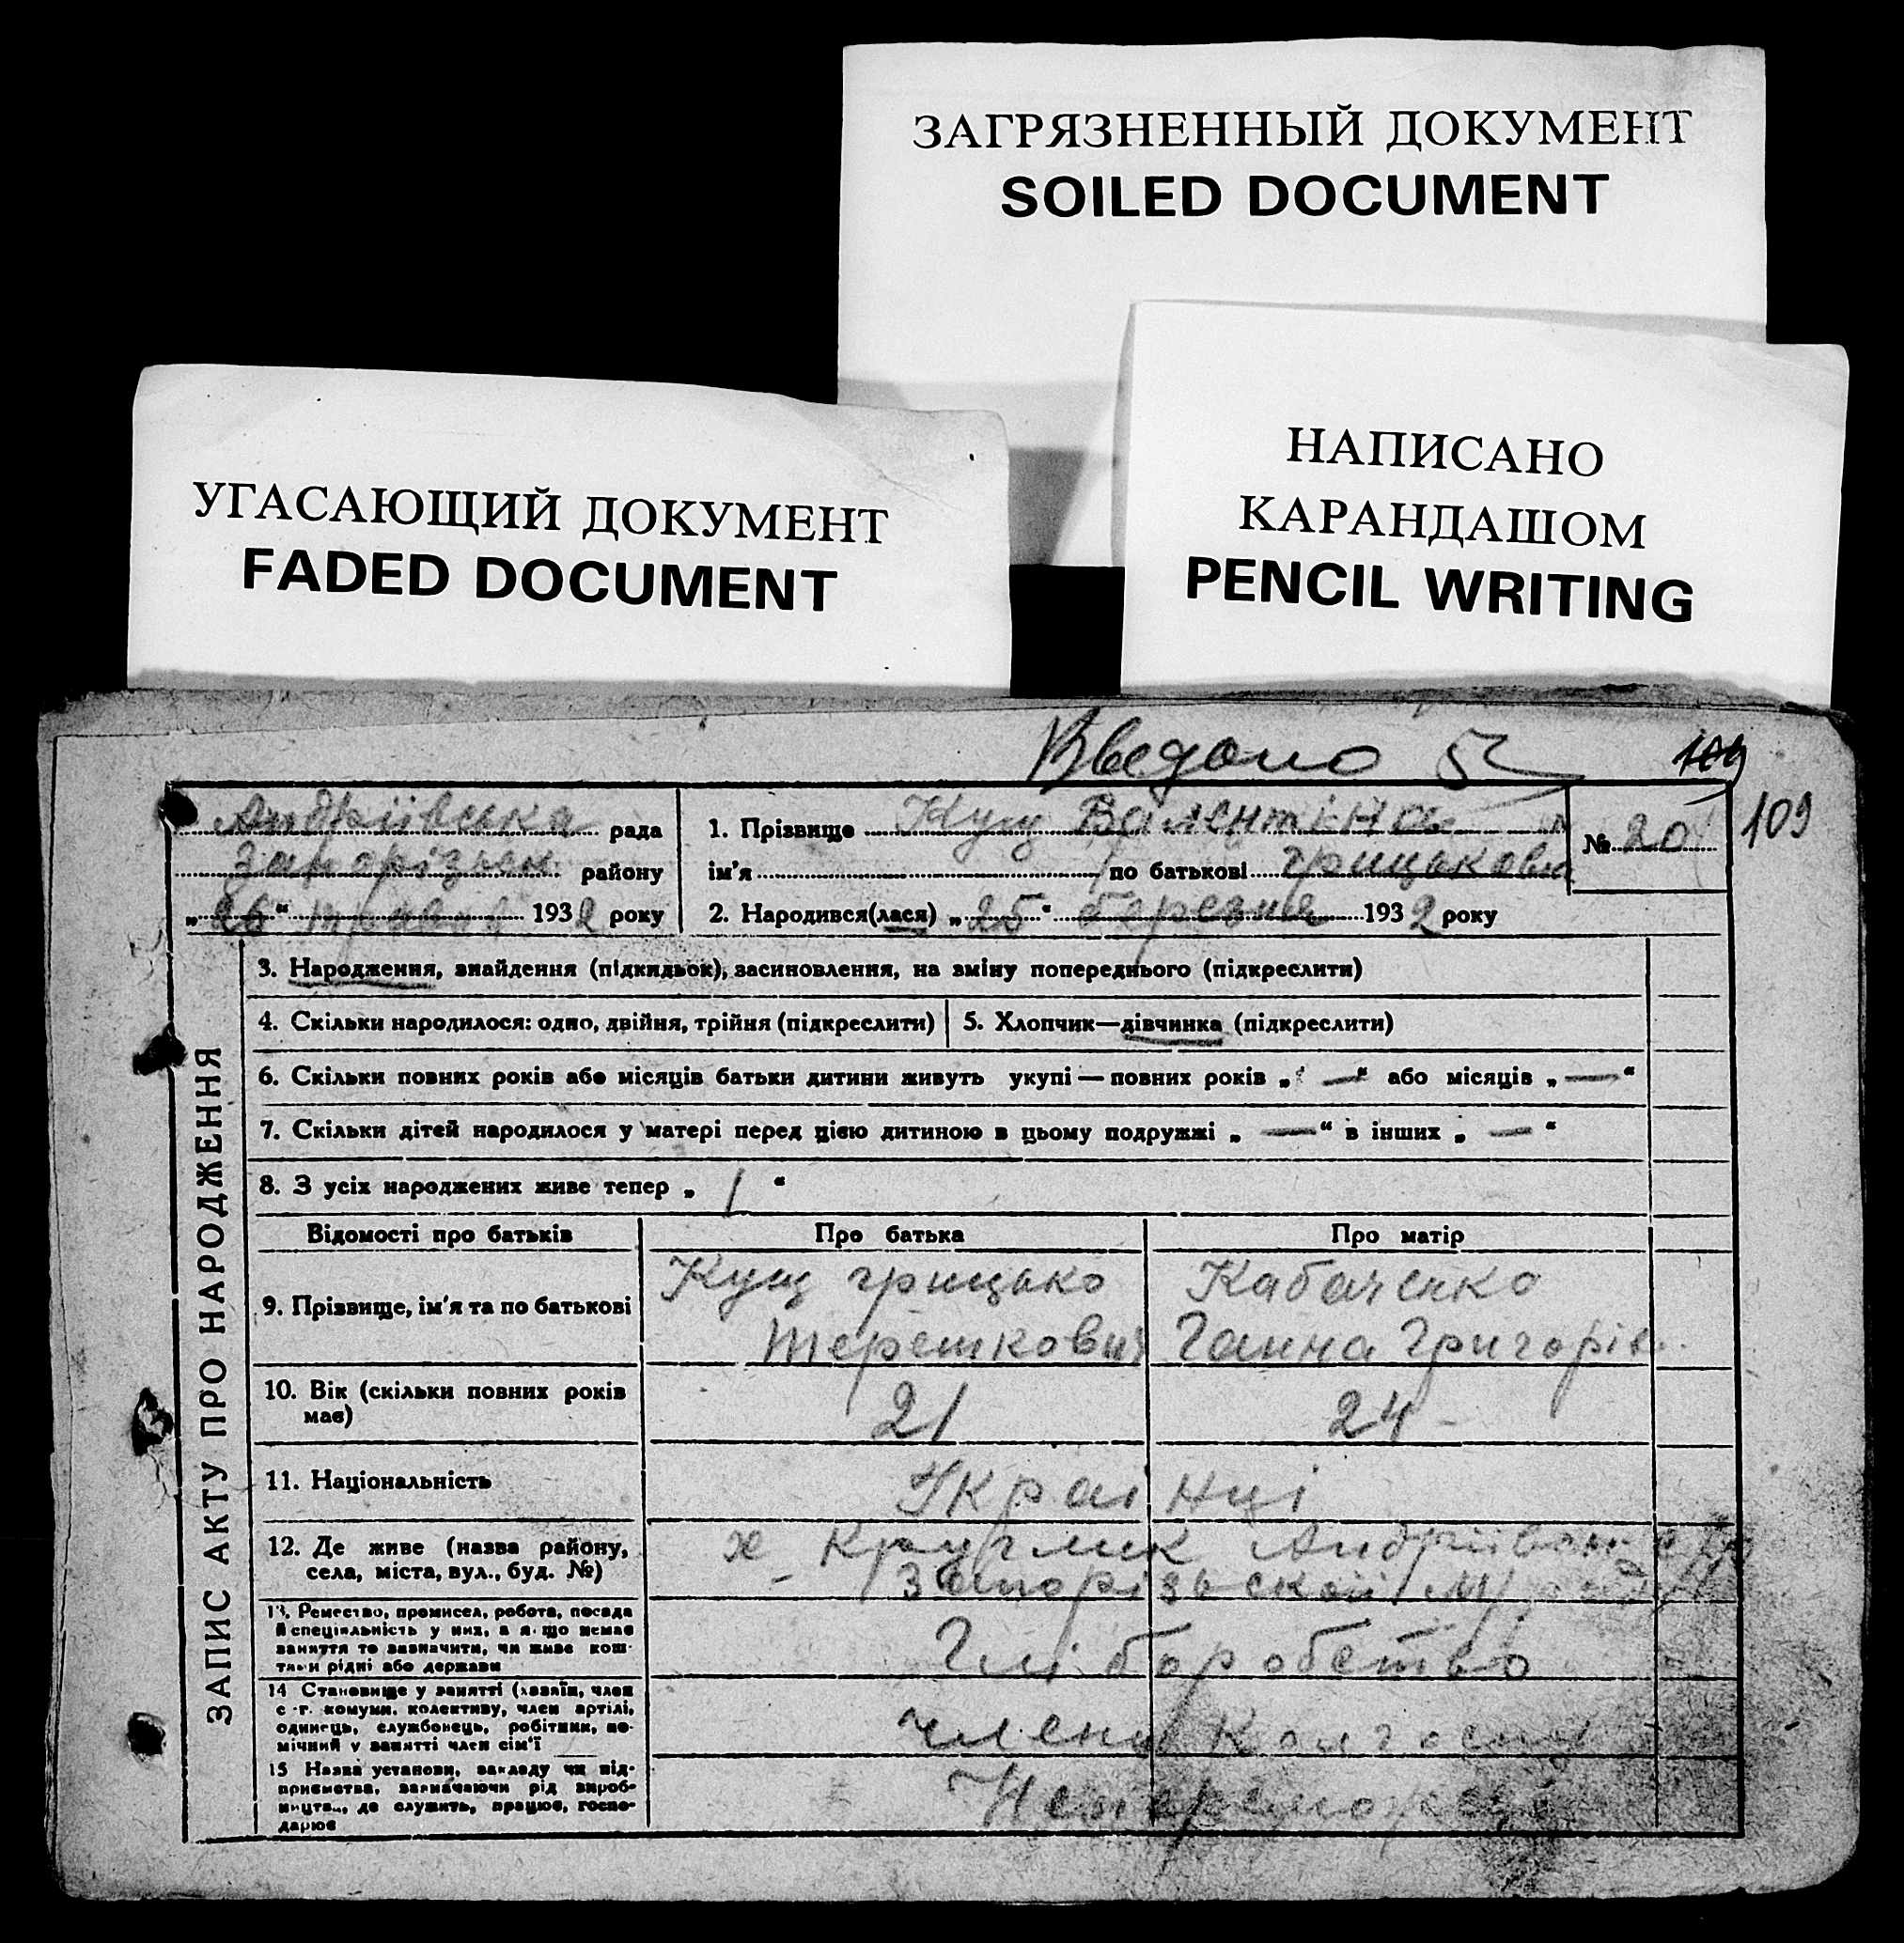 ЗАГРЯЗНЕННЫЙ ДОКУМЕНТ
SOILED DOCUMENT
НАПИСАНО
КАРАНДАШОМ
PENCIL WRITING
УГАСАЮЩИЙ ДОКУМЕНТ
FADED DOCUMENT
Введено
109
109
Андріївська рада
Запорізьк району
„26“ травня 1932 року
1. Прізвище Кущ Валентіна
ім'я по батькові Грицьковна
2. Народився(лася) „25“ березня 1932 року
№ 20
ЗАПИС АКТУ ПРО НАРОДЖЕННЯ
3. Народження, знайдення (підкидьок), засиновлення, на зміну попереднього (підкреслити)
4. Скільки народилося: одно, двійня, трійня (підкреслити)
5. Хлопчик—дівчинка (підкреслити)
6. Скільки повних років або місяців батьки дитини живуть укупі — повних років „ — “ або місяців „ — “
7. Скільки дітей народилося у матері перед цією дитиною в цьому подружжі „ — “ в інших „ — “
8. З усіх народжених живе тепер „ 1 “
Відомості про батьків Про батька Про матір
9. Прізвище, ім'я та по батькові
Кущ Грицько
Терешкович
Кабаченко
Ганна Григорів
10. Вік (скільки повних років
має)
21
24
11. Національність
Украінці
12. Де живе (назва району,
села, міста, вул., буд. №)
х Круглик Андріівськ
Запорізької
13. Ремество, промисел, робота, посада
й спеціяльність у них, а якщо немає
заняття то зазначити, чи живе кош-
тами рідні або держави
Хліборобство
14 Становище у занятті (хазяїн, член
с.-г. комуни, колективу, член артілі,
одинець, службовець, робітник, по-
мічний у занятті член сім'ї
члени колгоспу
15 Назва установи, закладу чи під-
приємства, зазначаючи рід вироб-
ництва, де служить, працює, госпо-
дарює